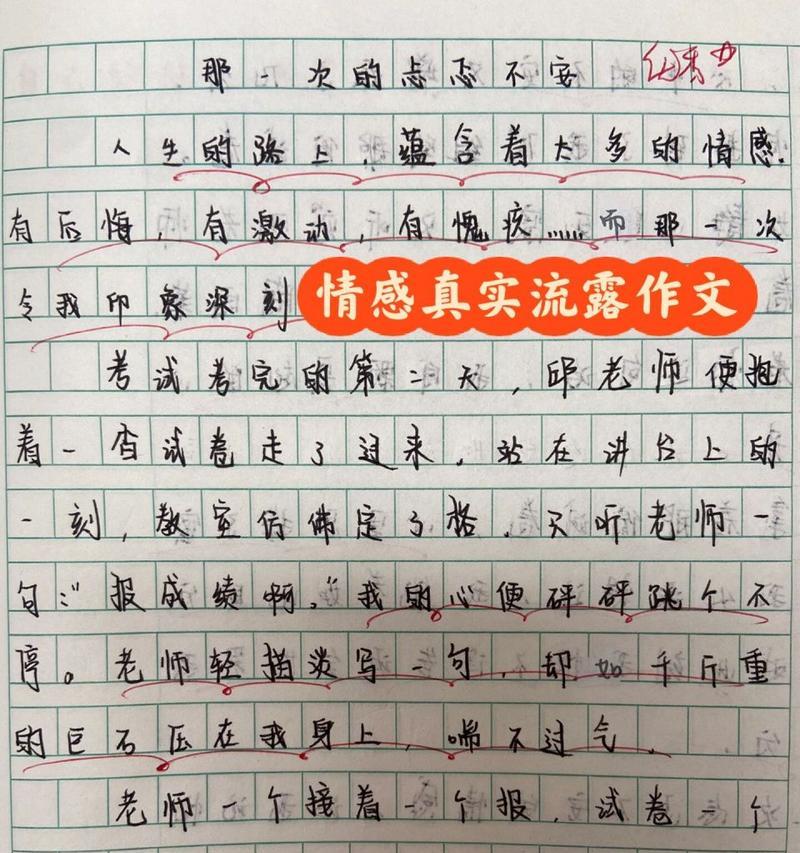 那一次的忐忑不安
人生的路上,蕴含着太多的情感.
有后悔,有激动,有愧疚……而那一次
令我印象深刻
情感真实流露作文
考试考完的第二天,邱老师便抱
着一沓试卷走了过来,站在讲台上的
一刻,教室仿佛定了格,只听老师一
句:"报成绩啊。"我的心便砰砰跳个不
停。老师轻描淡写一句,却如千斤重
的巨石压在我身上,喘不过气.
老师一个接着一个报,试卷一个